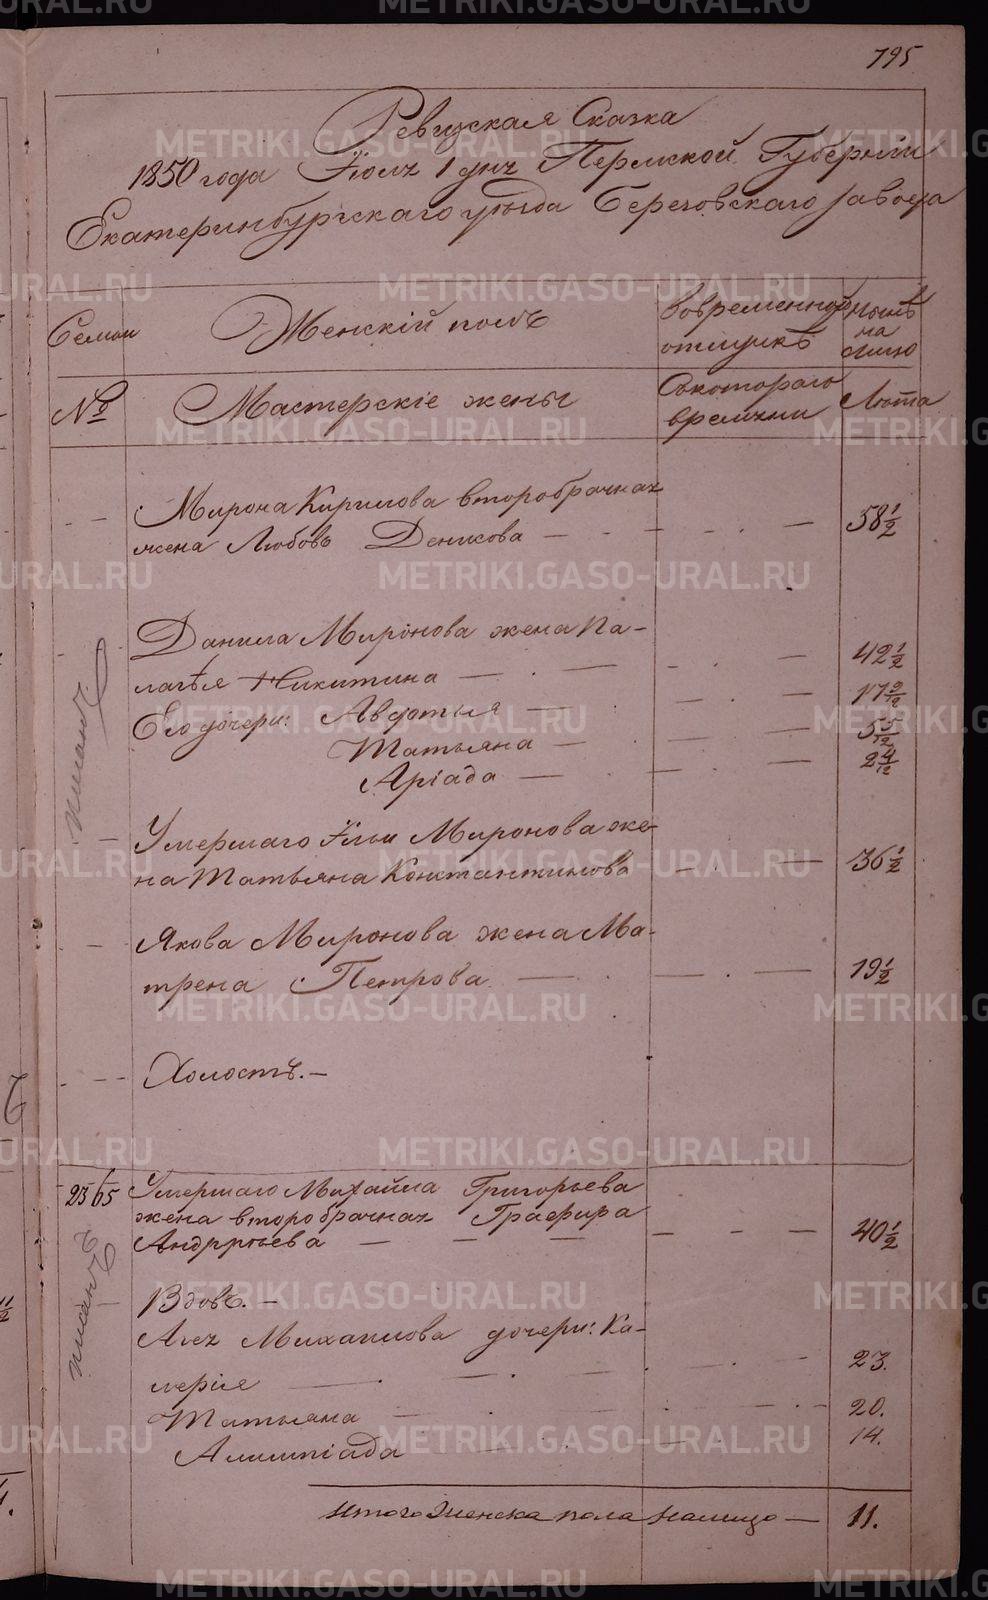 795
Ревизская Сказка
1850 года Іюля 1 дня Пермской Губерніи
Екатеринбургскаго уѣзда Березовскаго завода
Семьи
Женскій полъ
Во временной отлучкѣ
Нынѣ на лицо
№
Мастерскіе жены
Съ котораго времени
Лѣта
Мирона Кирилова второбрачная
жена Любовь Денисова 58 1/2
Данила Миронова жена Па-
лагѣя Никитина 42 1/2
Его дочери: Авдотья 17 9/12
Татьяна 5 5/12
Аріада 2 4/12
Умершаго Ильи Миронова же-
на Татьяна Константинова 36 1/2
Якова Миронова жена Ма-
трена Петрова 19 1/2
Холостъ.
23/65 Умершаго Михайла Григорьева
жена второбрачная Графира
Андреева 40 1/2
Вдовъ.
Михаилова дочери: Ка-
лерія 23.
Татьяна 20.
Алимпіада 14.
Итого Женска пола налицо 11.
писанъ
писанъ
METRIKI.GASO-URAL.RU